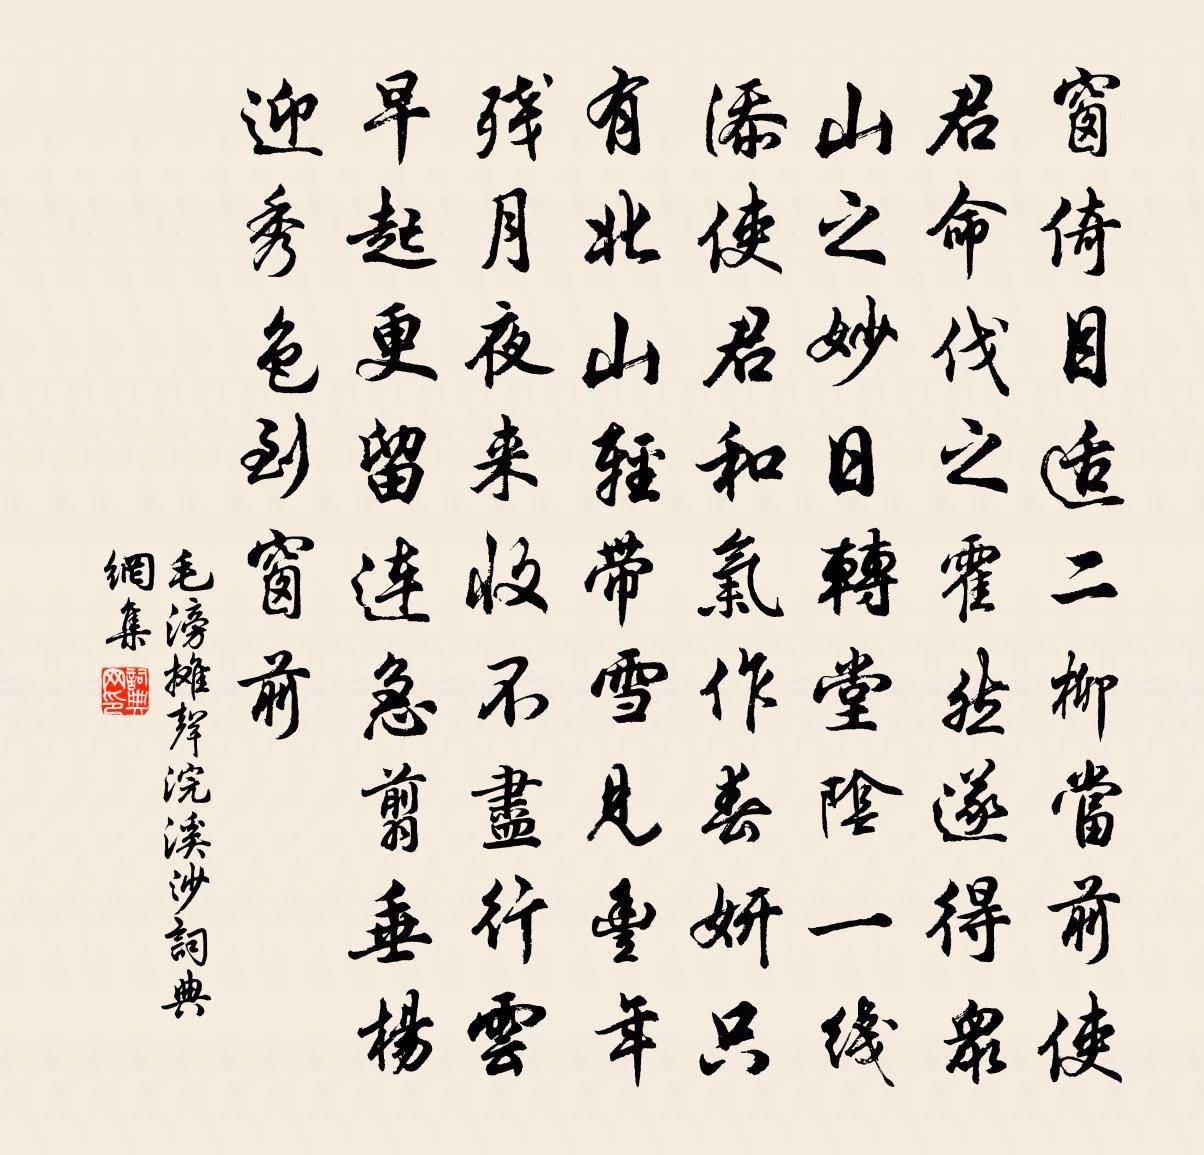 窗倚目适二柳當前使
君命伐之霍然遂得衆
山之妙日轉堂陰一线
添使君和氣作春妍只
有北山輕带雪見豊年
残月夜来收不盡行雲
早起更留連急翦垂楊
迎秀色到窗前
毛滂摊聲浣溪沙詞典
網集
詞典網印